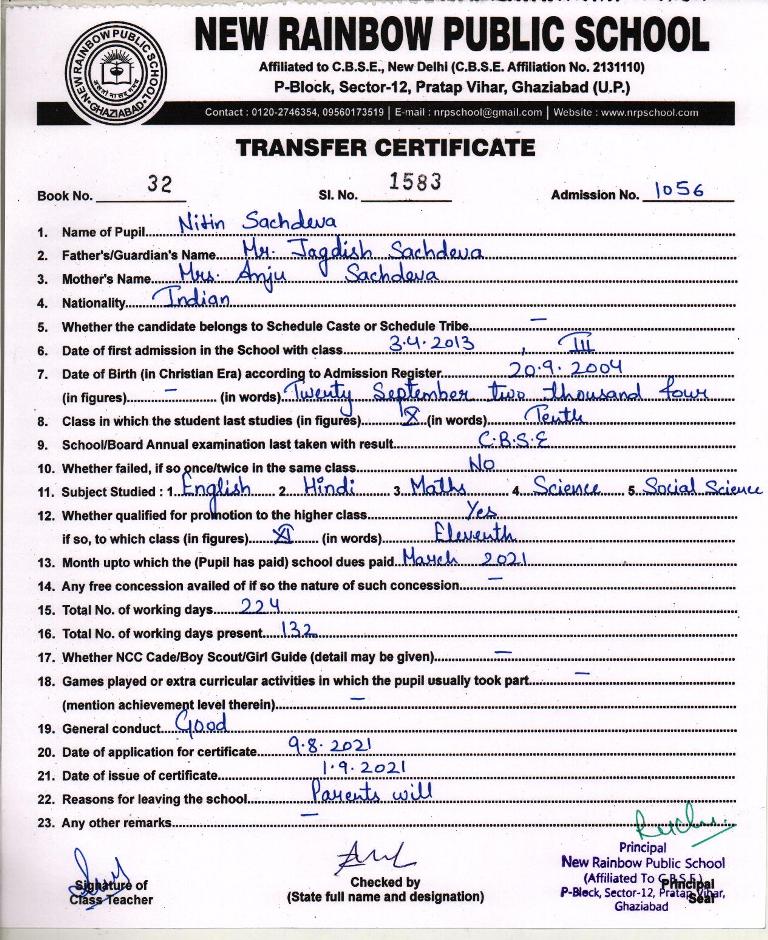 NEW RAINBOW PUBLIC SCHOOL
NEW RAINBOW PUBLIC SCHOOL
GHAZIABAD
Affiliated to C.B.S.E., New Delhi (C.B.S.E. Affiliation No. 2131110)
P-Block, Sector-12, Pratap Vihar, Ghaziabad (U.P.)
Contact : 0120-2746354, 09560173519 | E-mail : nrpschool@gmail.com | Website : www.nrpschool.com
TRANSFER CERTIFICATE
Book No. 32 Sl. No. 1583 Admission No. 1056
1. Name of Pupil Nitin Sachdeva
2. Father's/Guardian's Name Mr. Jagdish Sachdeva
3. Mother's Name Mrs. Anju Sachdeva
4. Nationality Indian
5. Whether the candidate belongs to Schedule Caste or Schedule Tribe —
6. Date of first admission in the School with class 3.4.2013 , III
7. Date of Birth (in Christian Era) according to Admission Register 20.9.2004
(in figures) — (in words) Twenty September two thousand four
8. Class in which the student last studies (in figures) X (in words) Tenth
9. School/Board Annual examination last taken with result C.B.S.E
10. Whether failed, if so once/twice in the same class No
11. Subject Studied : 1. English 2. Hindi 3. Maths 4. Science 5. Social Science
12. Whether qualified for promotion to the higher class Yes
if so, to which class (in figures) XI (in words) Eleventh
13. Month upto which the (Pupil has paid) school dues paid March 2021
14. Any free concession availed of if so the nature of such concession —
15. Total No. of working days 224
16. Total No. of working days present 132
17. Whether NCC Cade/Boy Scout/Girl Guide (detail may be given) —
18. Games played or extra curricular activities in which the pupil usually took part —
(mention achievement level therein) —
19. General conduct Good
20. Date of application for certificate 9.8.2021
21. Date of issue of certificate 1.9.2021
22. Reasons for leaving the school Parents will
23. Any other remarks —
Signature of
Class Teacher
Checked by
(State full name and designation)
Principal
New Rainbow Public School
(Affiliated To C.B.S.E.)
P-Block, Sector-12, Pratap Vihar,
Ghaziabad
Principal
Seal